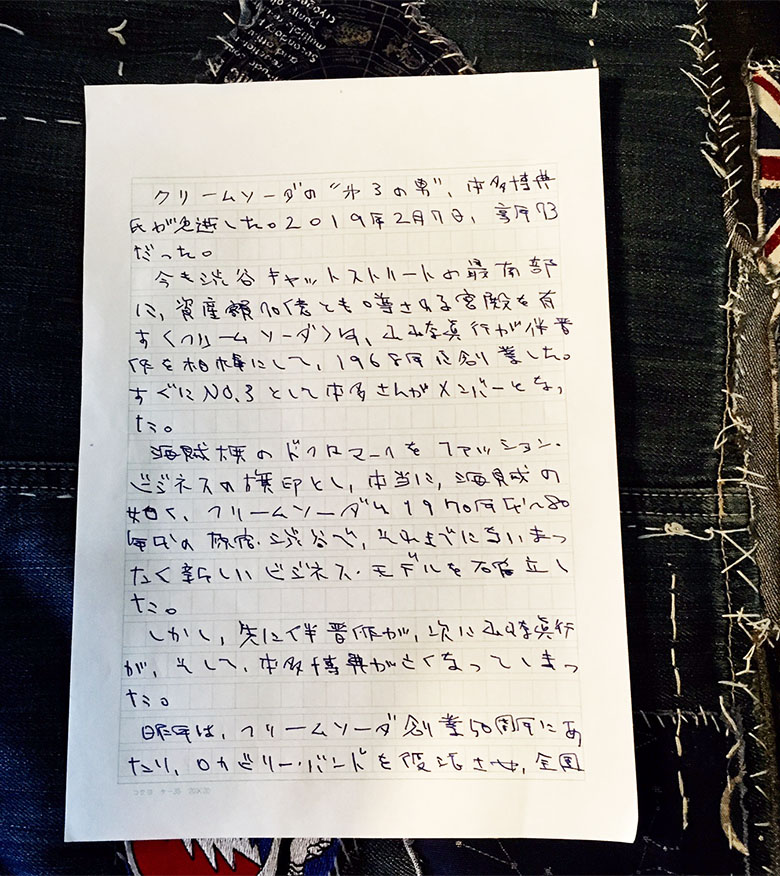 クリームソーダの“第3の男”、本多博典
氏が急逝した。2019年2月7日、享年73
だった。
今も渋谷キャットストリートの最南部
に、資産額70億とも噂される宮殿を有
す〈クリームソーダ〉は、山崎眞行が伴晋
作を相棒にして、1968年に創業した。
すぐにNO.3として本多さんがメンバーとなっ
た。
海賊旗のドクロマークをファッション・
ビジネスの旗印とし、本当に、海賊の
如く、クリームソーダは1970年代〜80
年代の原宿・渋谷で、それまでにないまっ
たく新しいビジネス・モデルを確立し
た。
しかし、先に伴晋作が、次に山崎眞行
が、そして、本多博典が亡くなってしまっ
た。
昨年は、クリームソーダ創業50周年にあ
たり、ロカビリー・バンドを復活させ、全国